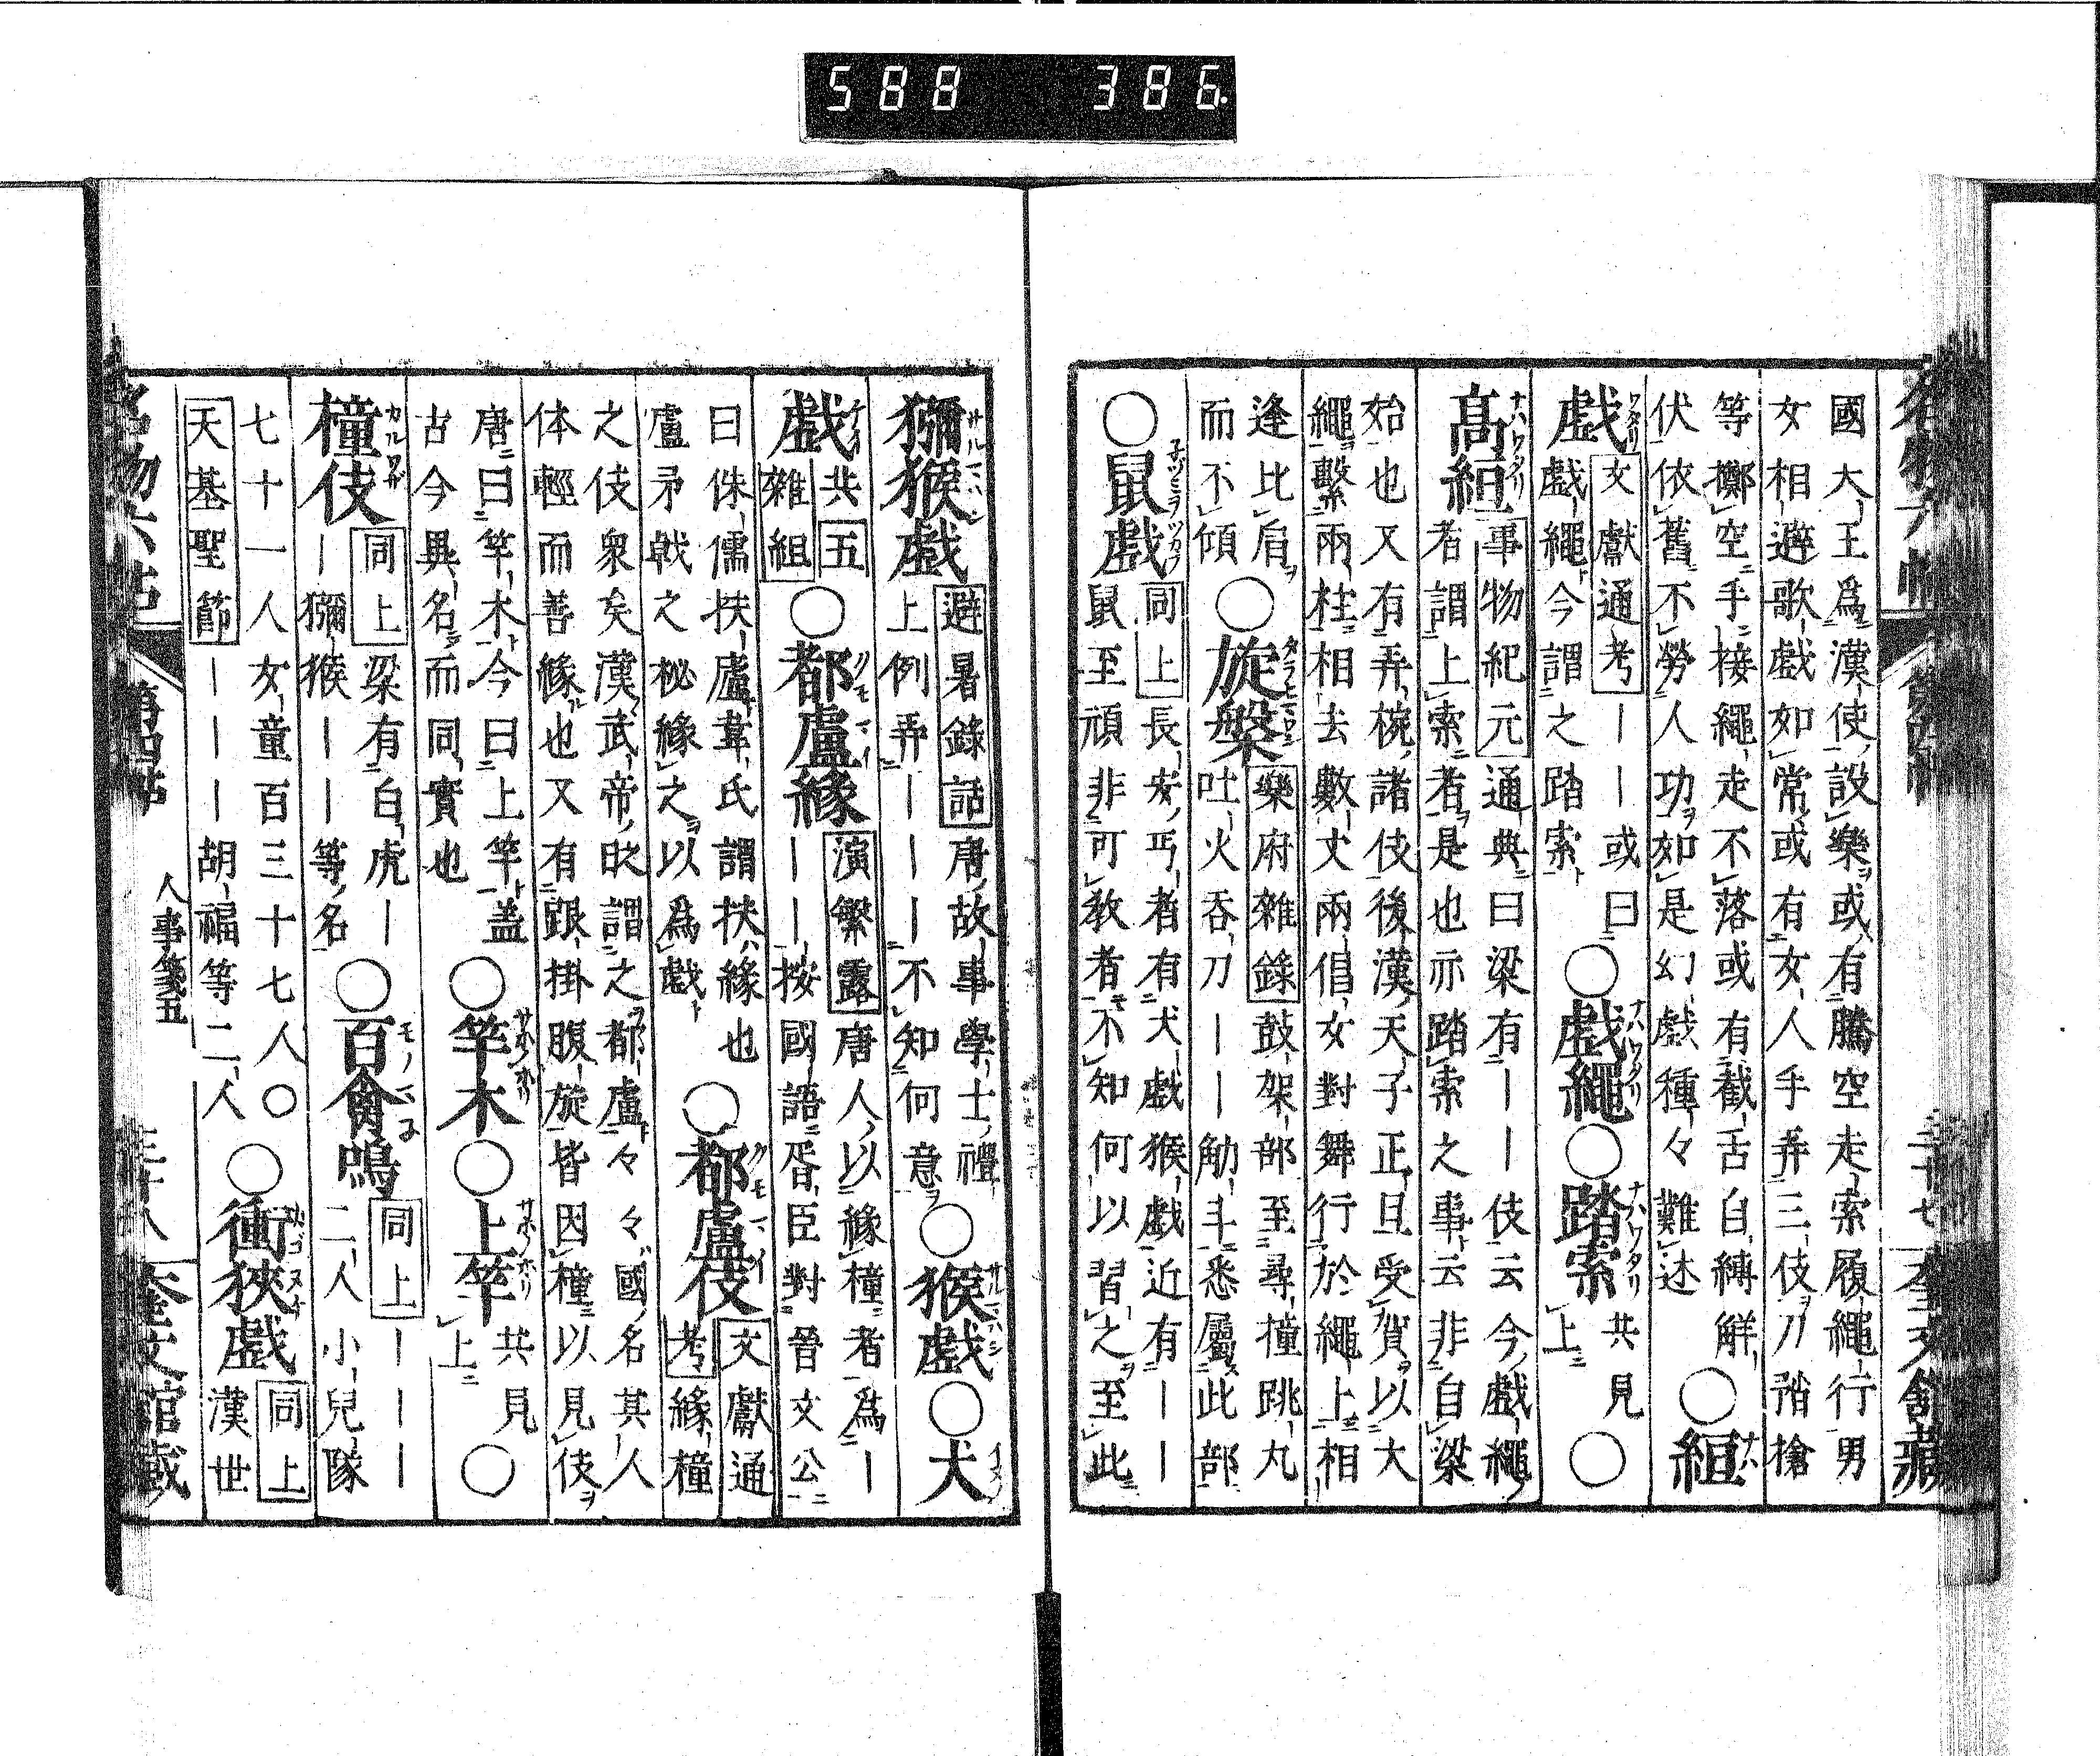 588 386
國大王爲漢使設樂或有騰空走索履繩行男
女相避歌戲如常或有女人手弄三伎刀矟槍
等擲空手接繩走不落或有截舌自縛解
伏依舊不勞人功如是幻戲種々難述
○絙
戲
文獻通考
――或曰
戲繩今謂之踏索
○戲繩○踏索
共見
上
○
高絙
事物紀元
通典曰梁有――伎云今戲繩
者謂上索者是也亦踏索之事云非自梁
始也又有弄椀諸伎後漢天子正旦受賀以大
繩繫兩柱相去數丈兩倡女對舞行於繩上相
逢比肩
而不傾
○旋槃
樂府雜錄
鼓架部至尋撞跳丸
吐火吞刀――觔斗悉屬此部
○鼠戲
同上
長安丐者有犬戲猴戲近有――
鼠至頑非可敎者不知何以習之至此
獼猴戲
避暑錄話
唐故事學士禮
上例弄―――不知何意
○猴戲○犬
戲
共五
雜組
○都盧緣
演繁露
唐人以緣橦者爲―
――按國語胥臣對晉文公
曰侏儒扶盧韋氏謂扶緣也
盧矛戟之柲緣之以爲戲
○都盧伎
文獻通
考
緣橦
之伎衆矣漢武帝時謂之都盧々々國名其人
体輕而善緣也又有跟掛腹旋皆因橦以見伎
唐曰竿木今曰上竿盖
古今異名而同實也
○竿木○上竿
共見
上
○
橦伎
同上
梁有白虎―
―獼猴――等名
○百禽鳴
同上
―――
二人小兒隊
七十一人女童百三十七人○
天基聖節
―――胡福等二人
○衝狹戲
同上
漢世
人事箋五
奎文館藏